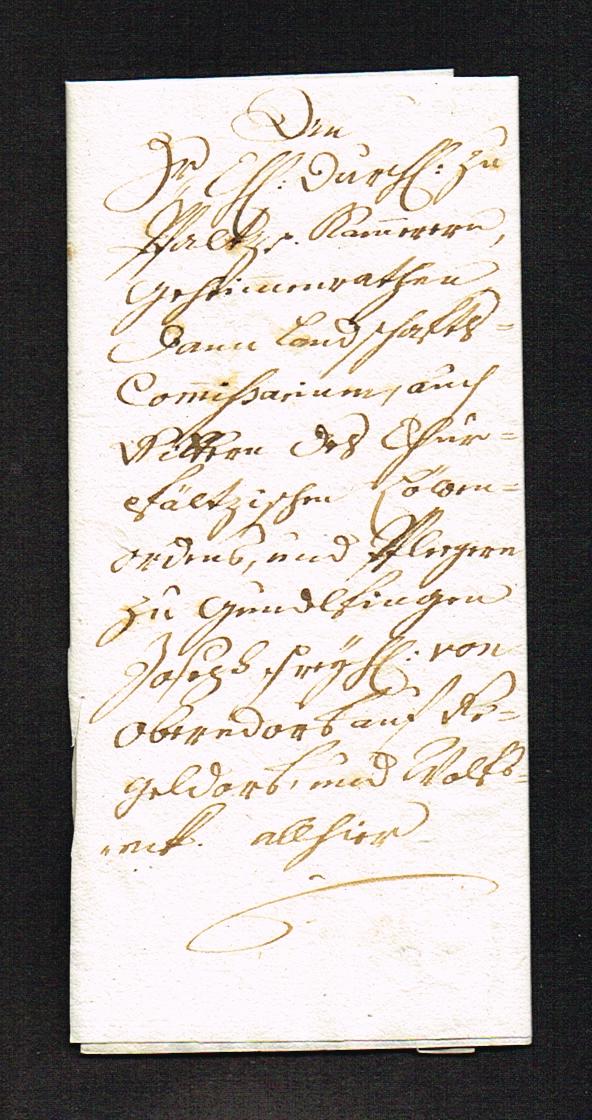 Dem
Sr Chl: Durchl: zu
Pfaltz p. Kammerern,
geheimmenrathen
Dann Landschafts=
Commissarium, auch
Rittern des Chur=
pfältzischen Löwen=
ordens, und Pflegern
zu Gundlfingen
Joseph Freyh: von
Oberndorf auf Re=
geldorf, und Wolfs=
eck. allhier